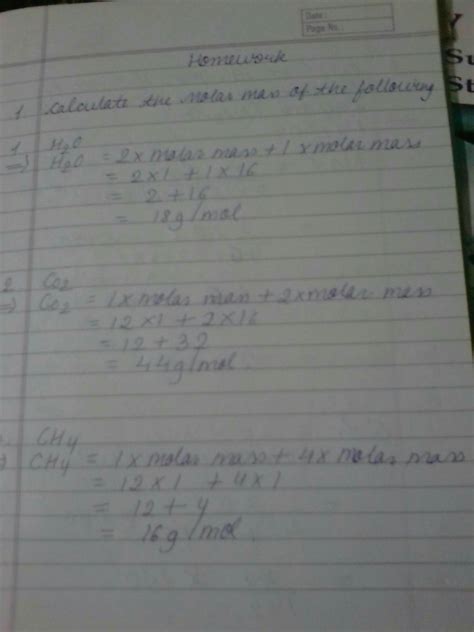 Date :
Page No. :
Y
Su
St
Homework
1 Calculate the Molar mass of the following
1 H2O
=> H2O = 2 x molar mass + 1 x molar mass
= 2 x 1 + 1 x 16
= 2 + 16
= 18 g/mol
2 CO2
=> CO2 = 1 x molar mass + 2 x molar mass
= 12 x 1 + 2 x 16
= 12 + 32
= 44 g/mol.
CH4
CH4 = 1 x molar mass + 4 x molar mass
= 12 x 1 + 4 x 1
= 12 + 4
= 16 g/mol.